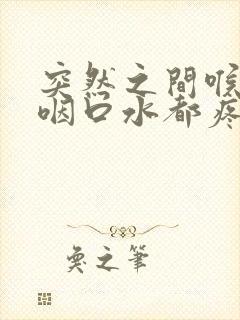 突然之間喉
咽口水都疼
奠之筆